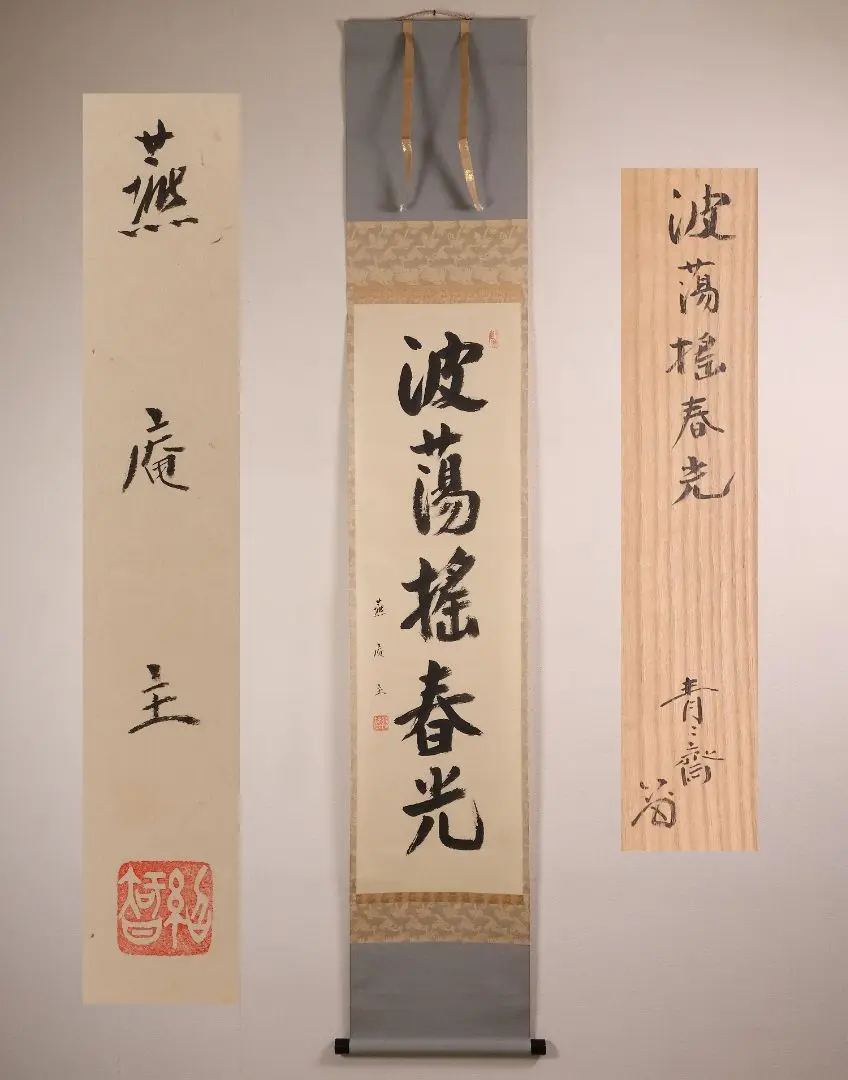 波蕩搖春光
青々齋
波蕩搖春光
燕庵主
燕庵主
紹智